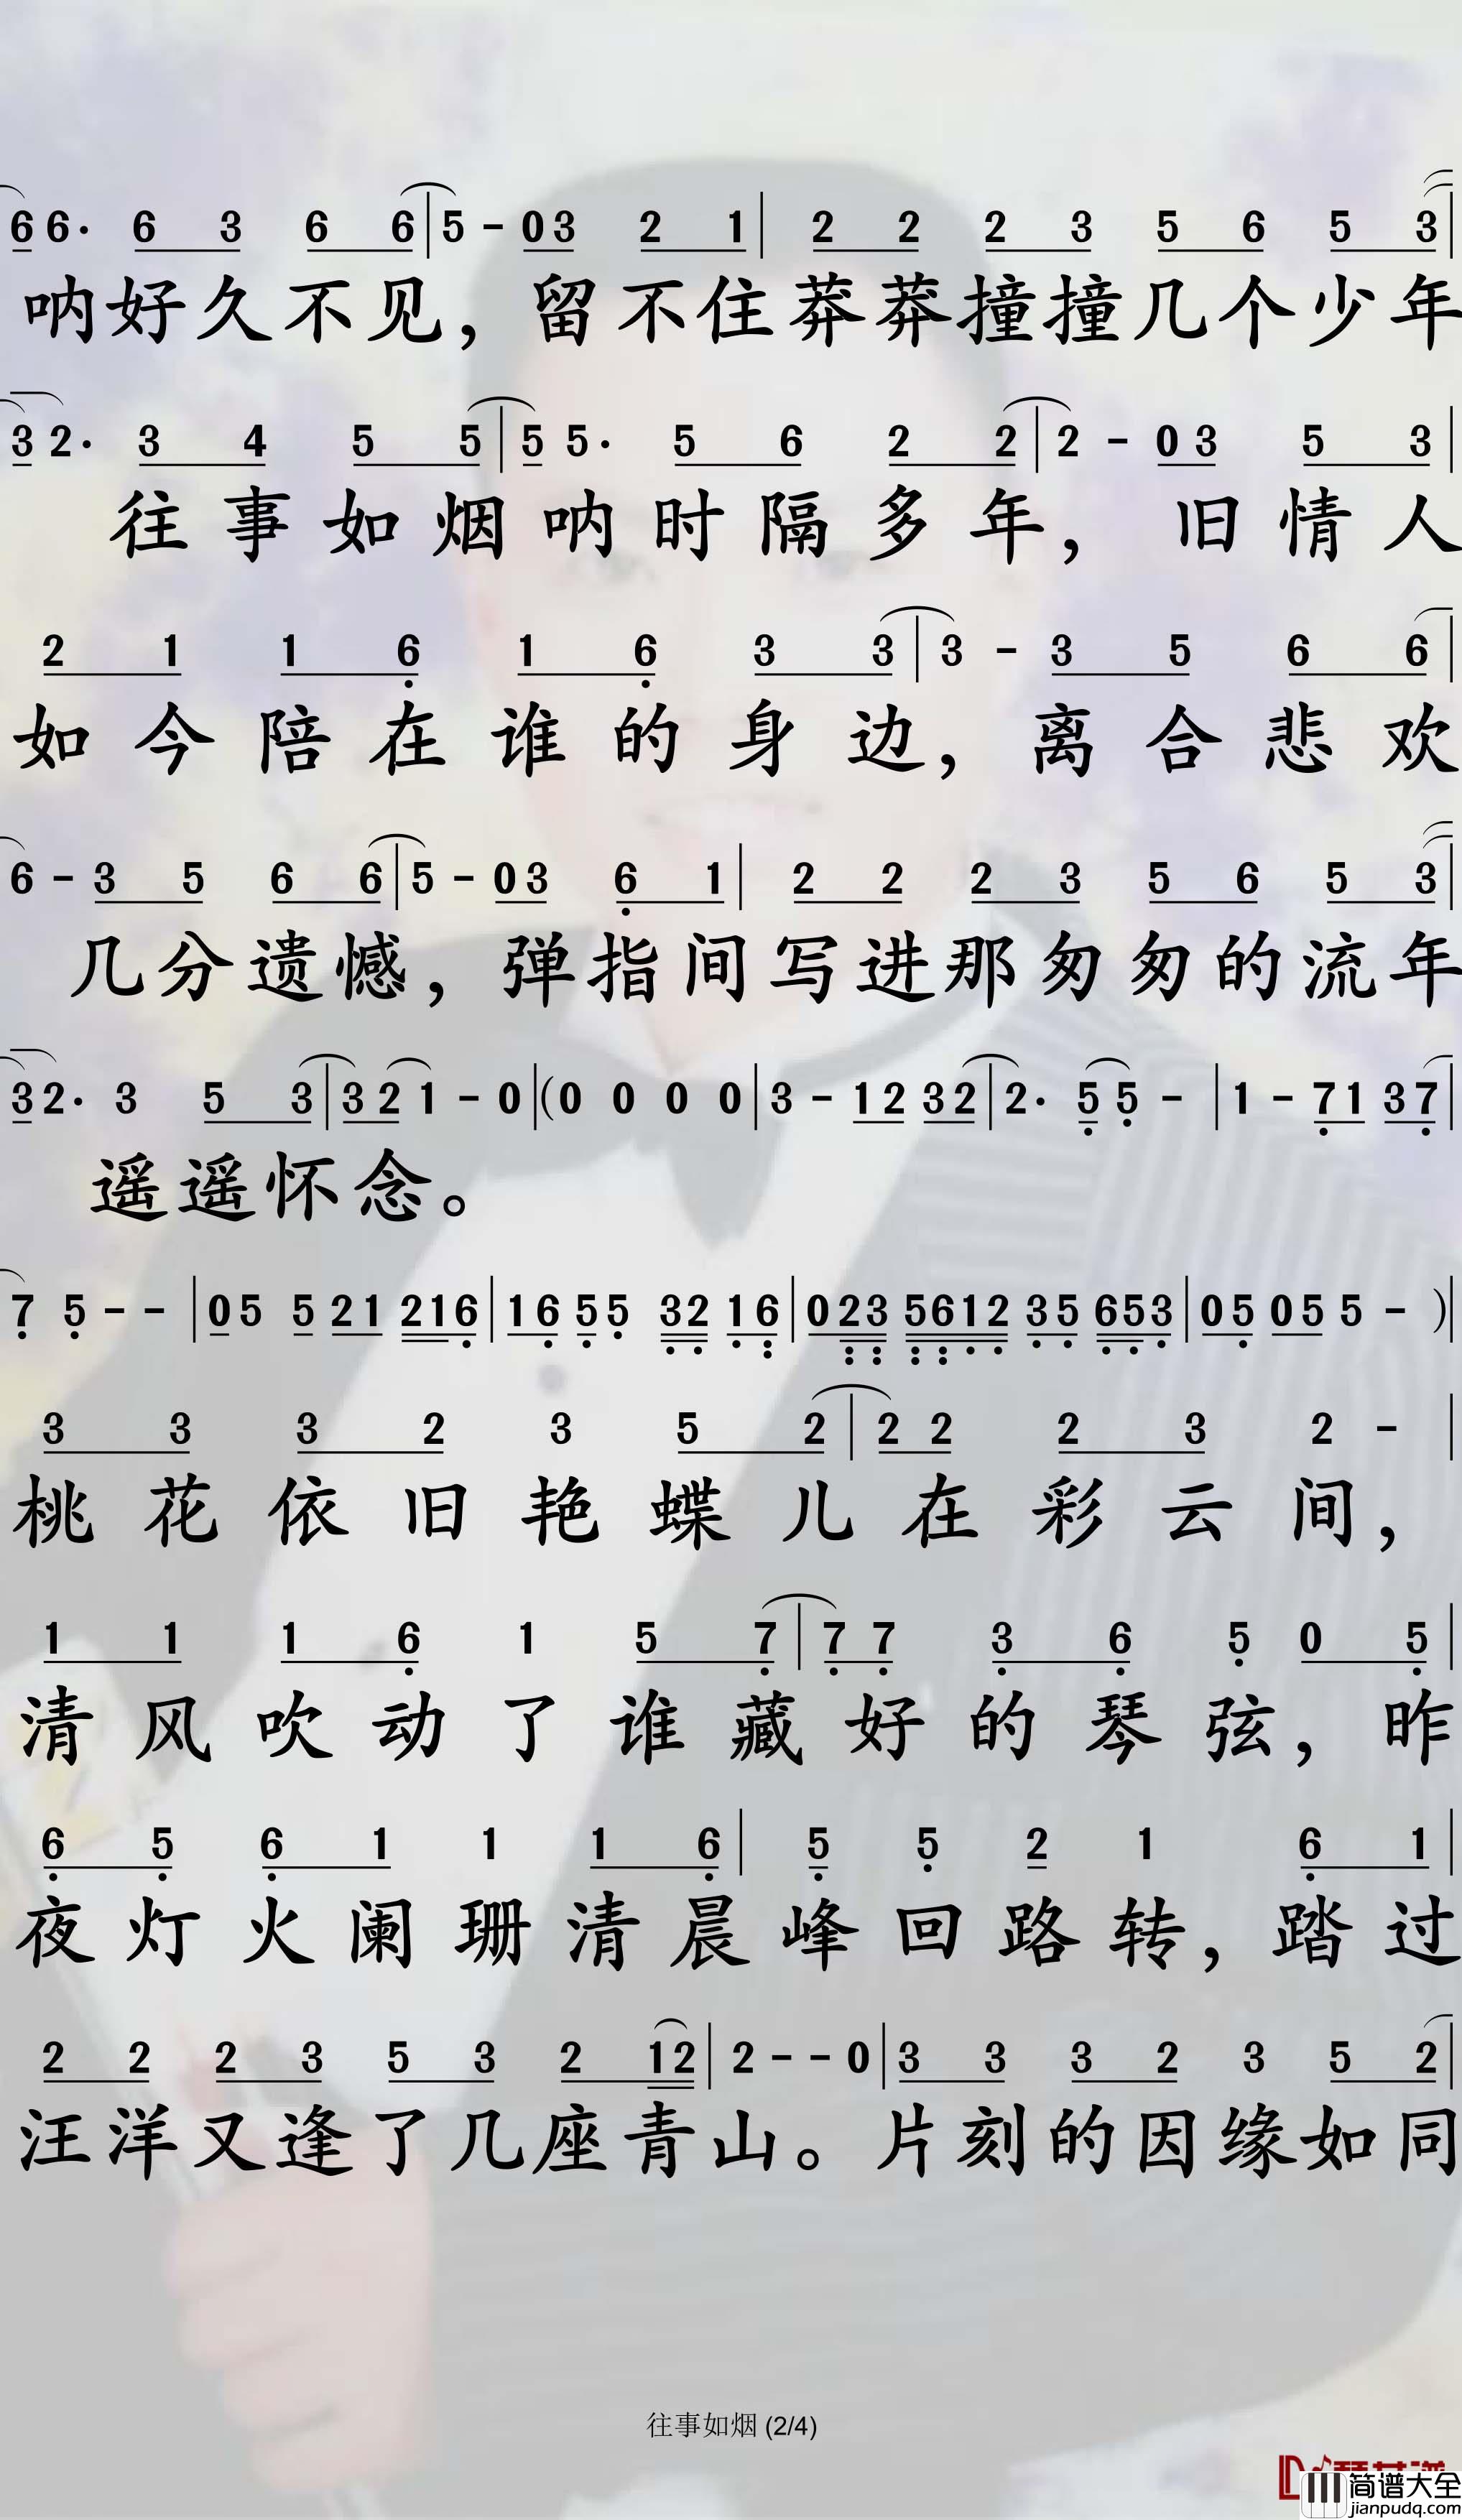 6 6· 6 3 6 6 | 5 - 0 3 2 1 | 2 2 2 3 5 6 5 3 |
呐好久不见，留不住莽莽撞撞几个少年
3 2· 3 4 5 5 | 5 5· 5 6 2 2 | 2 - 0 3 5 3 |
往事如烟呐时隔多年，旧情人
2 1 1 6 1 6 3 3 | 3 - 3 5 6 6 |
如今陪在谁的身边，离合悲欢
6 - 3 5 6 6 | 5 - 0 3 6 1 | 2 2 2 3 5 6 5 3 |
几分遗憾，弹指间写进那匆匆的流年
3 2· 3 5 3 | 3 2 1 - 0 | (0 0 0 0 | 3 - 1 2 3 2 | 2· 5 5 - | 1 - 7 1 3 7 |
遥遥怀念。
7 5 - - | 0 5 5 2 1 2 1 6 | 1 6 5 5 3 2 1 6 | 0 2 3 5 6 1 2 3 5 6 5 3 | 0 5 0 5 5 - ) |
3 3 3 2 3 5 2 | 2 2 2 3 2 - |
桃花依旧艳蝶儿在彩云间，
1 1 1 6 1 5 7 | 7 7 3 6 5 0 5 |
清风吹动了谁藏好的琴弦，昨
6 5 6 1 1 1 6 | 5 5 2 1 6 1 |
夜灯火阑珊清晨峰回路转，踏过
2 2 2 3 5 3 2 1 2 | 2 - - 0 | 3 3 3 2 3 5 2 |
汪洋又逢了几座青山。片刻的因缘如同
往事如烟 (2/4)
简谱大全
jianpudq.com